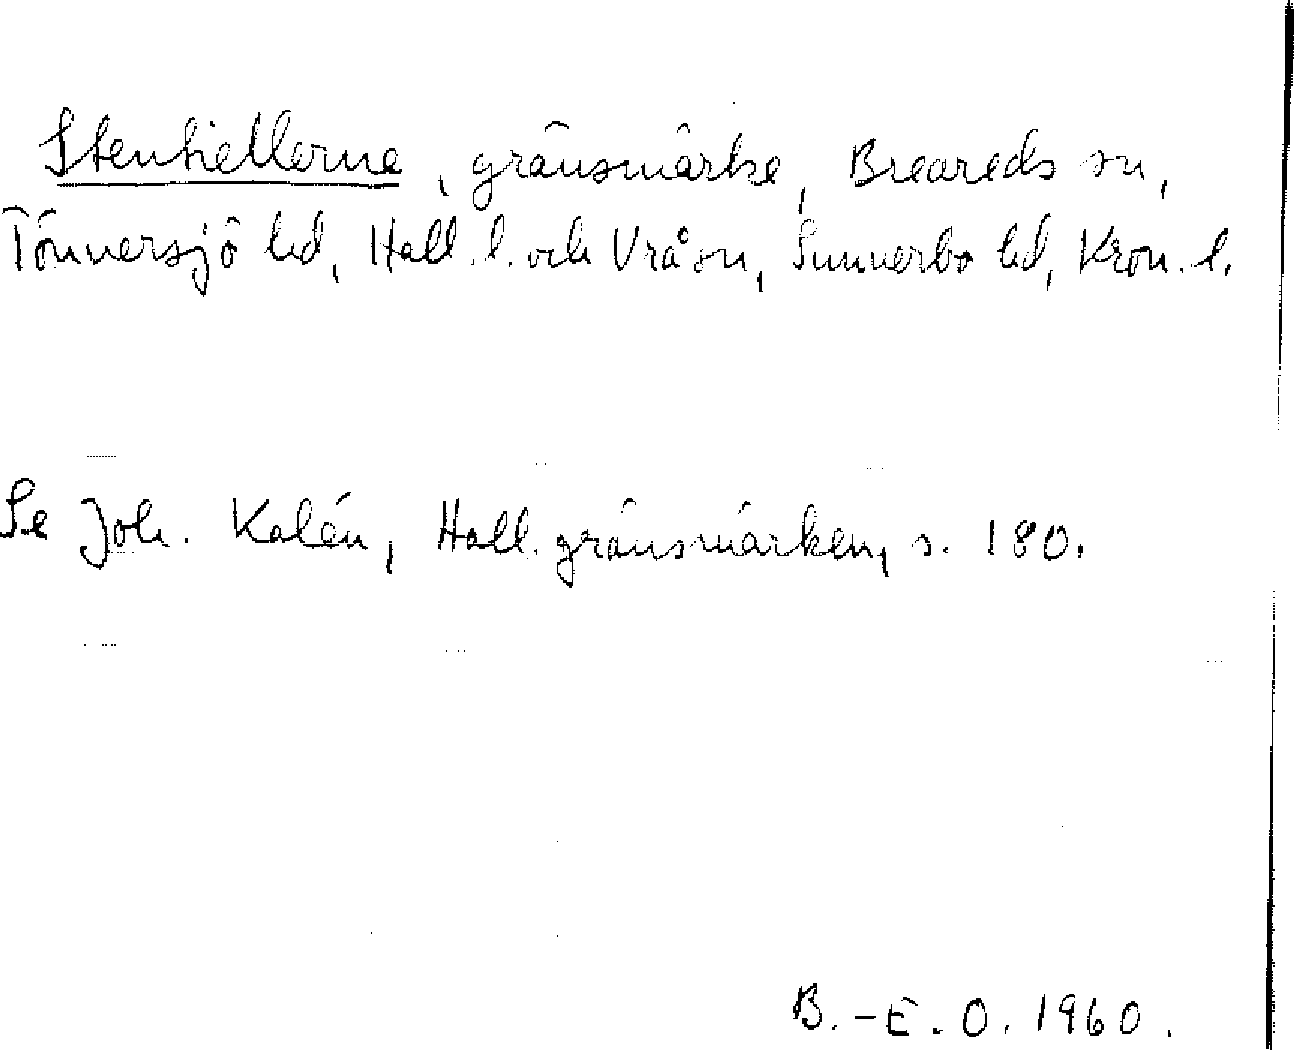 Stenhiellerne, gränsmärke, Breareds sn,
Tönnersjö hd, Hall. l. och Vrå sn, Sunnerbo hd, Kron. l.
Se Joh. Kalén, Hall. gränsmärken, s. 180.
B.-E. O. 1960.